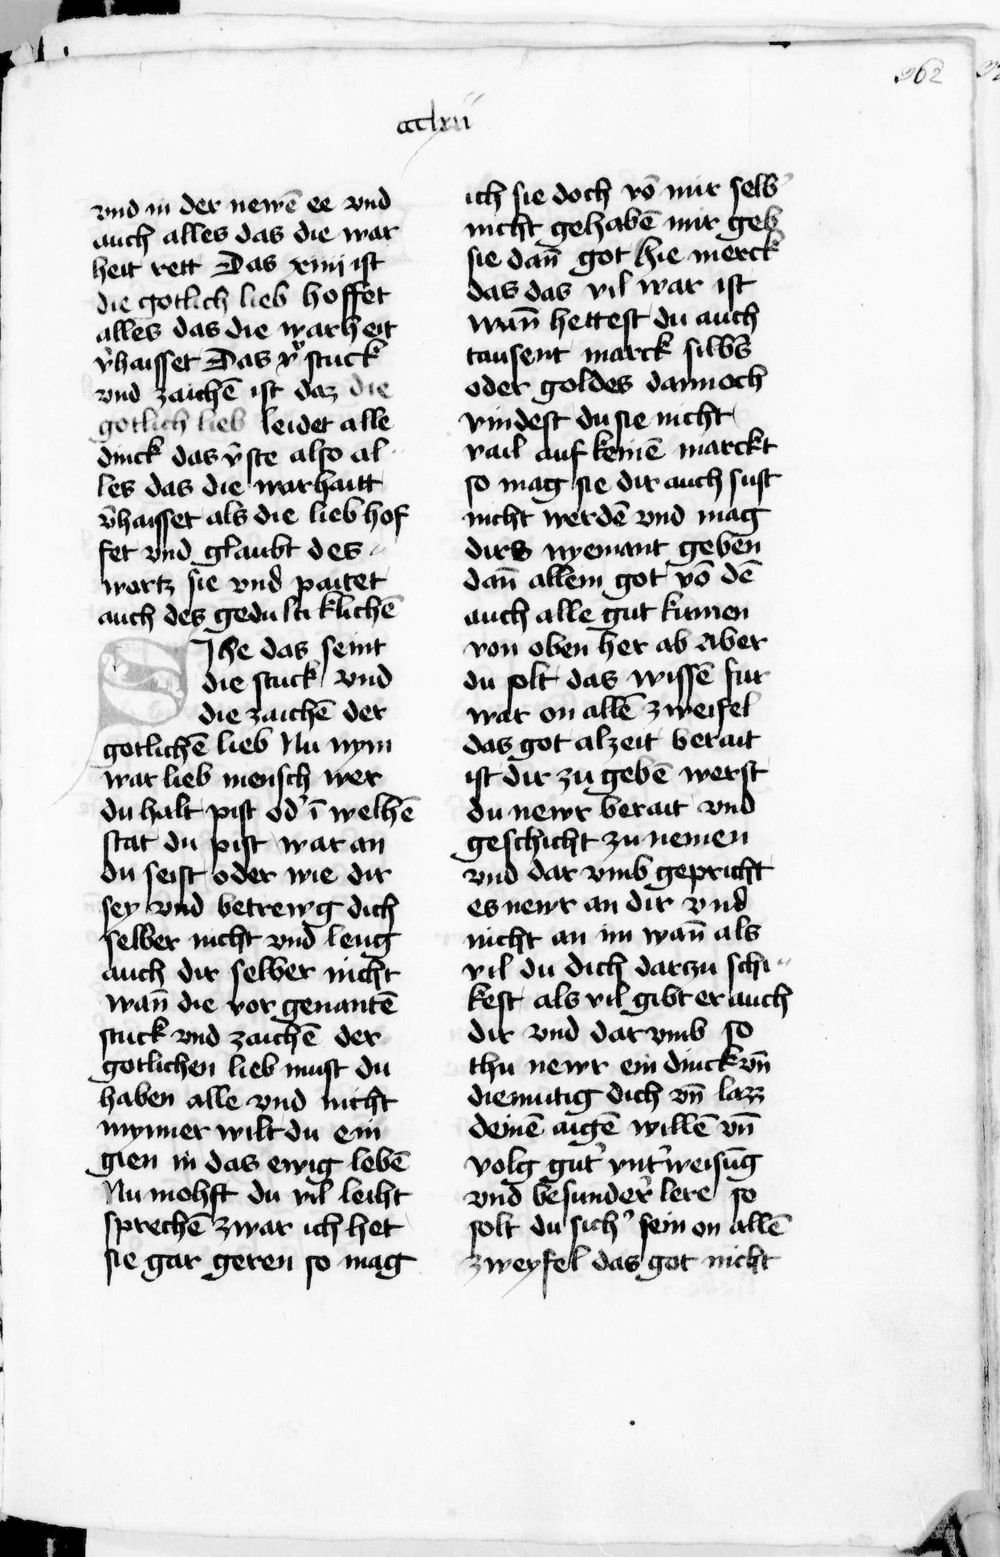 262
cclxii
vnd in der newē ee vnd
auch alles das die war
heit rett Das xiiij ist
die gotlich lieb hoffet
alles das die warheit
v̄haisset Das xv stuck
vnd zaichē ist daz die
gotlich lieb leidet alle
dinck das v̄ste also al
les das die warhaitt
v̄haisset als die lieb hof
fet vnd glaubt des
wartz sie vnd paitet
auch des gedulticklichē
Sihe das seint
die stuck vnd
die zaichē der
gotlichē lieb Nu nym
war lieb mensch wer
du halt pist od' ī welhē
stat du pist war an
du seist oder wie dir
sey vnd betrewg dich
selber nicht vnd leug
auch dir selber nicht
wan̄ die vor genantē
stuck vnd zaichē der
gotlichen lieb must du
haben alle vnd nicht
mynner wilt du ein
gien in das ewig lebē
Nu mohst du vil leiht
sprechē zwar ich het
sie gar geren so mag
ich sie doch vō mir selb'
nicht gehabē mir geb
sie dan̄ got hie merck
das das vil war ist
wan̄ hettest du auch
tausent marck silb's
oder goldes dannoch
vindest du sie nicht
vail auf keinē marckt
so mag sie dir auch sust
nicht werdē vnd mag
dirs nyemant geben
dan̄ allein got vō dē
auch alle gut kumen
von oben her ab Aber
du solt das wissē fur
war on allē zweifel
das got alzeit berait
ist dir zu gebē werst
du newr berait vnd
geschicht zu nemen
vnd dar vmb gepricht
es newr an dir vnd
nicht an im wan̄ als
vil du dich darzu schi
kest als vil gibt er auch
dir vnd dar vmb so
thu newr ein dinck vn̄
diemutig dich vn̄ lazz
deinē aigē willē vn̄
volg gut' vnt'weisūg
vnd besunder' lere so
solt du sich' sein on allē
zweyfel das got nicht